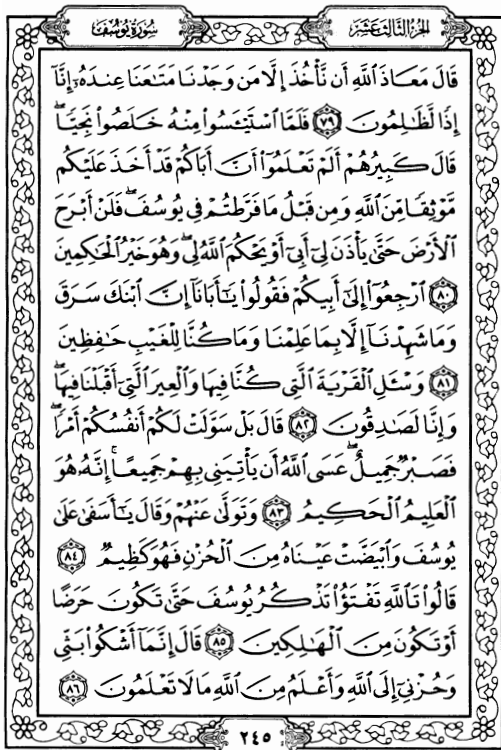 سُورَةُ يُوسُفَ
الجُزْءُ الثَّالِثَ عَشَرَ
قَالَ مَعَاذَ ٱللَّهِ أَن نَّأۡخُذَ إِلَّا مَن وَجَدۡنَا مَتَٰعَنَا عِندَهُۥٓ إِنَّآ
إِذٗا لَّظَٰلِمُونَ ٧٩ فَلَمَّا ٱسۡتَيۡـَٔسُواْ مِنۡهُ خَلَصُواْ نَجِيّٗاۖ
قَالَ كَبِيرُهُمۡ أَلَمۡ تَعۡلَمُوٓاْ أَنَّ أَبَاكُمۡ قَدۡ أَخَذَ عَلَيۡكُم
مَّوۡثِقٗا مِّنَ ٱللَّهِ وَمِن قَبۡلُ مَا فَرَّطتُمۡ فِي يُوسُفَۖ فَلَنۡ أَبۡرَحَ
ٱلۡأَرۡضَ حَتَّىٰ يَأۡذَنَ لِيٓ أَبِيٓ أَوۡ يَحۡكُمَ ٱللَّهُ لِيۖ وَهُوَ خَيۡرُ ٱلۡحَٰكِمِينَ
٨٠ ٱرۡجِعُوٓاْ إِلَىٰٓ أَبِيكُمۡ فَقُولُواْ يَٰٓأَبَانَآ إِنَّ ٱبۡنَكَ سَرَقَ
وَمَا شَهِدۡنَآ إِلَّا بِمَا عَلِمۡنَا وَمَا كُنَّا لِلۡغَيۡبِ حَٰفِظِينَ
٨١ وَسۡـَٔلِ ٱلۡقَرۡيَةَ ٱلَّتِي كُنَّا فِيهَا وَٱلۡعِيرَ ٱلَّتِيٓ أَقۡبَلۡنَا فِيهَاۖ
وَإِنَّا لَصَٰدِقُونَ ٨٢ قَالَ بَلۡ سَوَّلَتۡ لَكُمۡ أَنفُسُكُمۡ أَمۡرٗاۖ
فَصَبۡرٞ جَمِيلٌۖ عَسَى ٱللَّهُ أَن يَأۡتِيَنِي بِهِمۡ جَمِيعًاۚ إِنَّهُۥ هُوَ
ٱلۡعَلِيمُ ٱلۡحَكِيمُ ٨٣ وَتَوَلَّىٰ عَنۡهُمۡ وَقَالَ يَٰٓأَسَفَىٰ عَلَىٰ
يُوسُفَ وَٱبۡيَضَّتۡ عَيۡنَاهُ مِنَ ٱلۡحُزۡنِ فَهُوَ كَظِيمٞ ٨٤
قَالُواْ تَٱللَّهِ تَفۡتَؤُاْ تَذۡكُرُ يُوسُفَ حَتَّىٰ تَكُونَ حَرَضًا
أَوۡ تَكُونَ مِنَ ٱلۡهَٰلِكِينَ ٨٥ قَالَ إِنَّمَآ أَشۡكُواْ بَثِّي
وَحُزۡنِيٓ إِلَى ٱللَّهِ وَأَعۡلَمُ مِنَ ٱللَّهِ مَا لَا تَعۡلَمُونَ ٨٦
٢٤٥